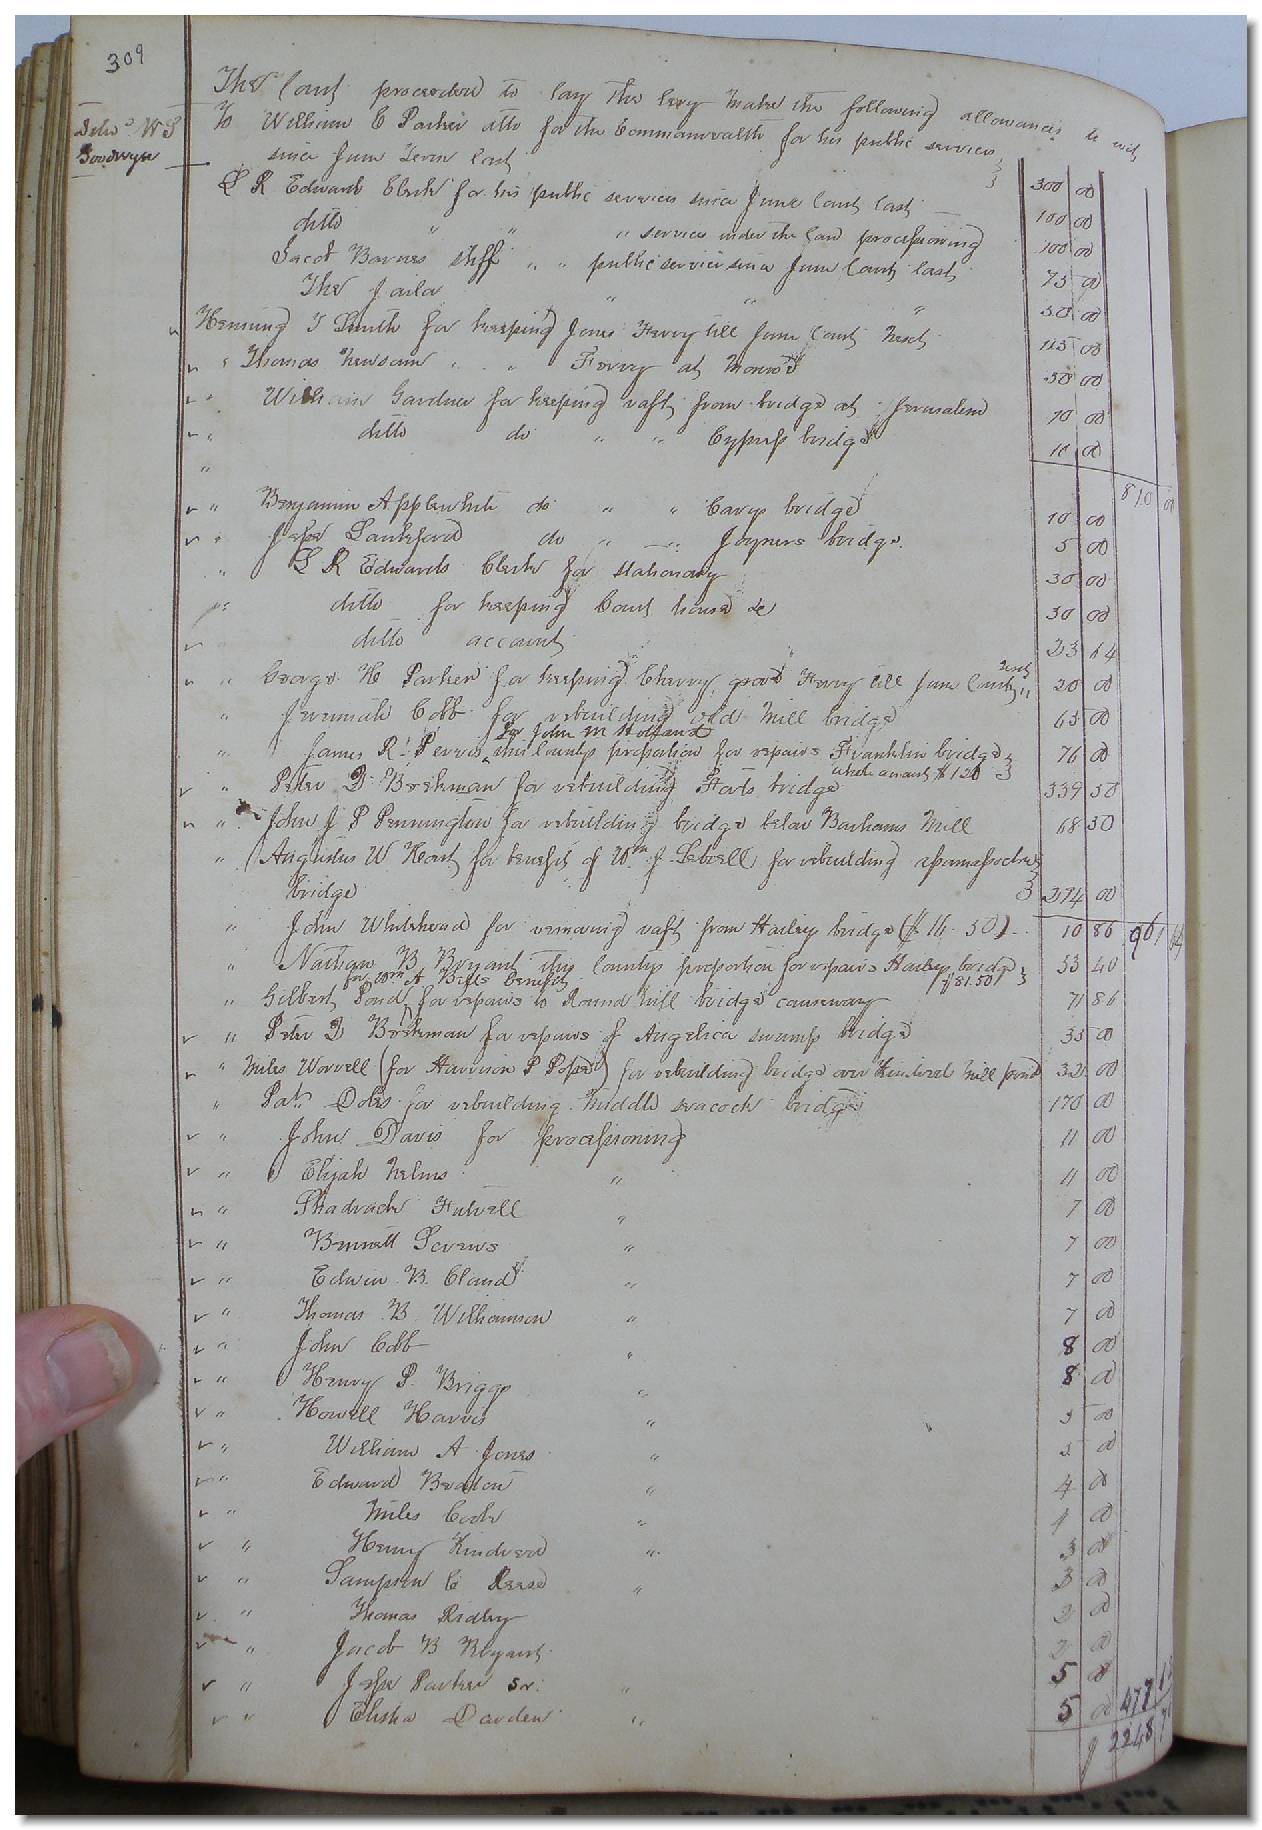 309
The Court proceeded to lay the levy make the following allowances to wit
Delv.d W S
Goodwyn
To William C Parker atto for the Commonwealth for his public services
since June Term last 300 00
L R Edwards Clerk for his public services since June Court last 100 00
ditto " " " services under the law processioning 100 00
Jacob Barnes shff " " public services since June Court last 75 00
The Jailor " " " 50 00
Henning T Smith for keeping Jones Ferry till June Court next 115 00
" Thomas Newsom " " Ferry at Monroe 50 00
" William Gardner for keeping raft from bridge at Jerusalem 10 00
" ditto do " " Cypress bridge 10 00
" 810 00
" Benjamin Applewhite do " " Carys bridge 10 00
" Jesse Lankford do " " Joyners bridge. 5 00
" L R Edwards Clerk for stationary 30 00
" ditto for keeping Court house &c 30 00
ditto account 23 64
" George H Parker for keeping Cherry grove Ferry till June Court next 20 00
" Jeremiah Cobb for rebuilding old Mill bridge 65 00
for John M Holland
" James R. Ferris this Countys proportion for repairs Franklin bridge 76 00
whole amount $120
" Peter D Bookman for rebuilding Forts bridge 339 50
" John J P Pennington for rebuilding bridge below Barhams Mill 68 50
" (Augustus W Heart for benefit of Wm. J. Sebrell for rebuilding
bridge 00
" John Whitehead for removing raft from Hailey bridge ($16.50) 10 86 961 64
" Nathan B Bryant this Countys proportion for repairs Haileys bridge 53 40
for Wm A Bells benefit ($81.50)
" Gilbert Pond for repairs to Round hill bridge causeway 71 86
" Peter D Bookman for repairs of Angelica swamp bridge 35 00
" Miles Worrell (for Harrison P Pope) for rebuilding bridge over Kindreds Mill pond 32 00
" Dobs for rebuilding middle seacock bridge 170 00
" John Davis for processioning 11 00
" Elijah Nelms " 11 00
" Shadrach Futrell " 7 00
" Bennett Screws " 7 00
" Edwin B. Claud " 7 00
" Thomas B Williamson " 7 00
" John Cobb " 8 00
" Henry P. Briggs " 8 00
" Howell Harris " 5 00
" William A Jones " 5 00
" Edward Beaton " 4 00
" Miles Cook " 4 00
" Henry Kindred " 3 00
" Sampson C Reese " 3 00
" Thomas Ridley 2 00
" Jacob B Bryant 2 00
" Jesse Parker sr. " 5 00
" Elisha Darden " 5 00 477 12
$ 2248 76